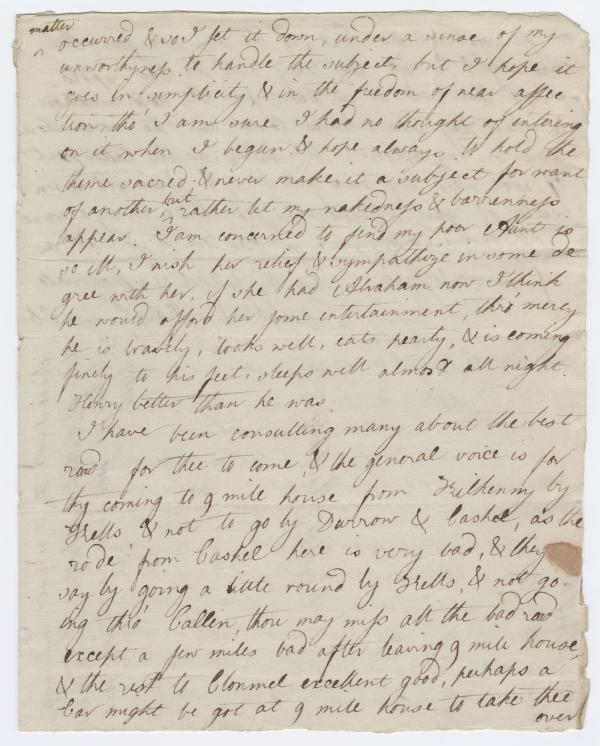 matter
occurred & so I set it down, under a sense of my
unworthyness to handle the subject, but I hope it
goes in simplicity & in the freedom of near affec
tion, tho' I am sure I had no thought of entering
on it when I begun & hope always to hold the
theme sacred, & never make it a subject for want
of another, but rather let my nakedness & barrenness
appear. I am concerned to find my poor Aunt is
so ill, I wish her relief & sympathize in some de
gree with her, if she had Abraham now I think
he would afford her some entertainment, thro' mercy
he is bravely, looks well, eats hearty, & is coming
finely to his feet, sleeps well almost all night.
Henry better than he was.
I have been consulting many about the best
road for thee to come, & the general voice is for
thy coming to 9 mile house from Kilkenny by
Kells & not to go by Durrow & Cashel, as the
rode from Cashel here is very bad, & they
say by going a little round by Kells, & not go-
ing thro' Callen, thou may miss all the bad road
except a few miles bad after leaving 9 mile house,
& the rest to Clonmel excellent good, perhaps a
Car might be got at 9 mile house to take thee
over